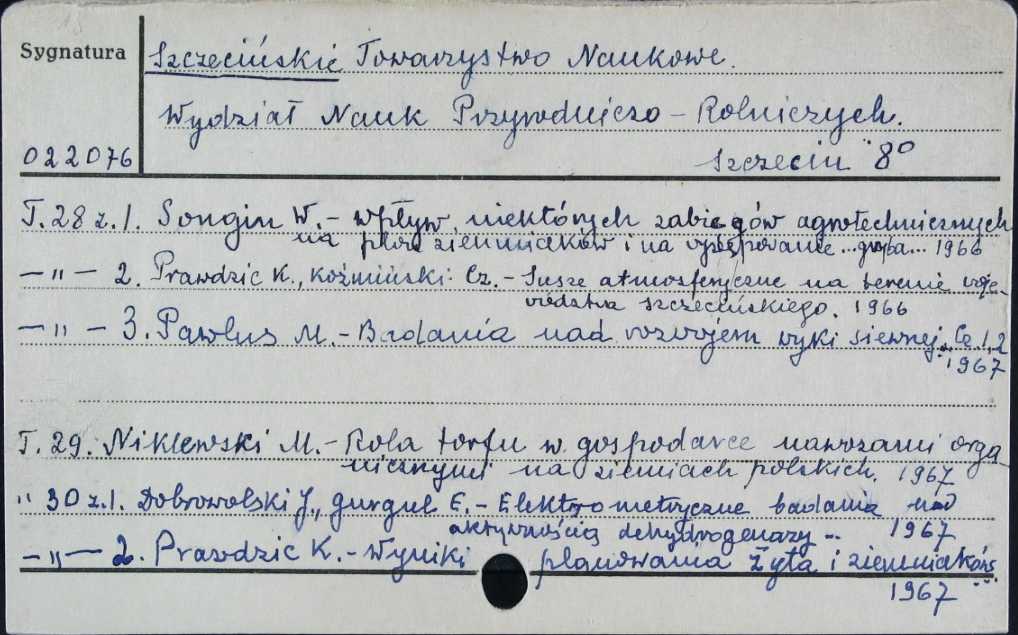 Sygnatura
Szczecińskie Towarzystwo Naukowe.
Wydział Nauk Przyrodniczo-Rolniczych.
022076
Szczecin 8°
T. 28 z. 1. Songin W. - Wpływ niektórych zabiegów agrotechnicznych
na plon ziemniaków i na występowanie ... 1966
— " — 2. Prawdzic K., Koźmiński Cz. - Susze atmosferyczne na terenie woje-
wództwa szczecińskiego. 1966
— " — 3. Pawlus M. - Badania nad rozwojem wyki siewnej. Cz. 1, 2
1967
T. 29. Niklewski M. - Rola torfu w gospodarce nawozami orga-
nicznymi na ziemiach polskich. 1967
" 30 z. 1. Dobrowolski J., Gurgul E. - Elektrometryczne badania nad
aktywnością dehydrogenazy ... 1967
— " — 2. Prawdzic K. - Wyniki plonowania żyta i ziemniaków
1967